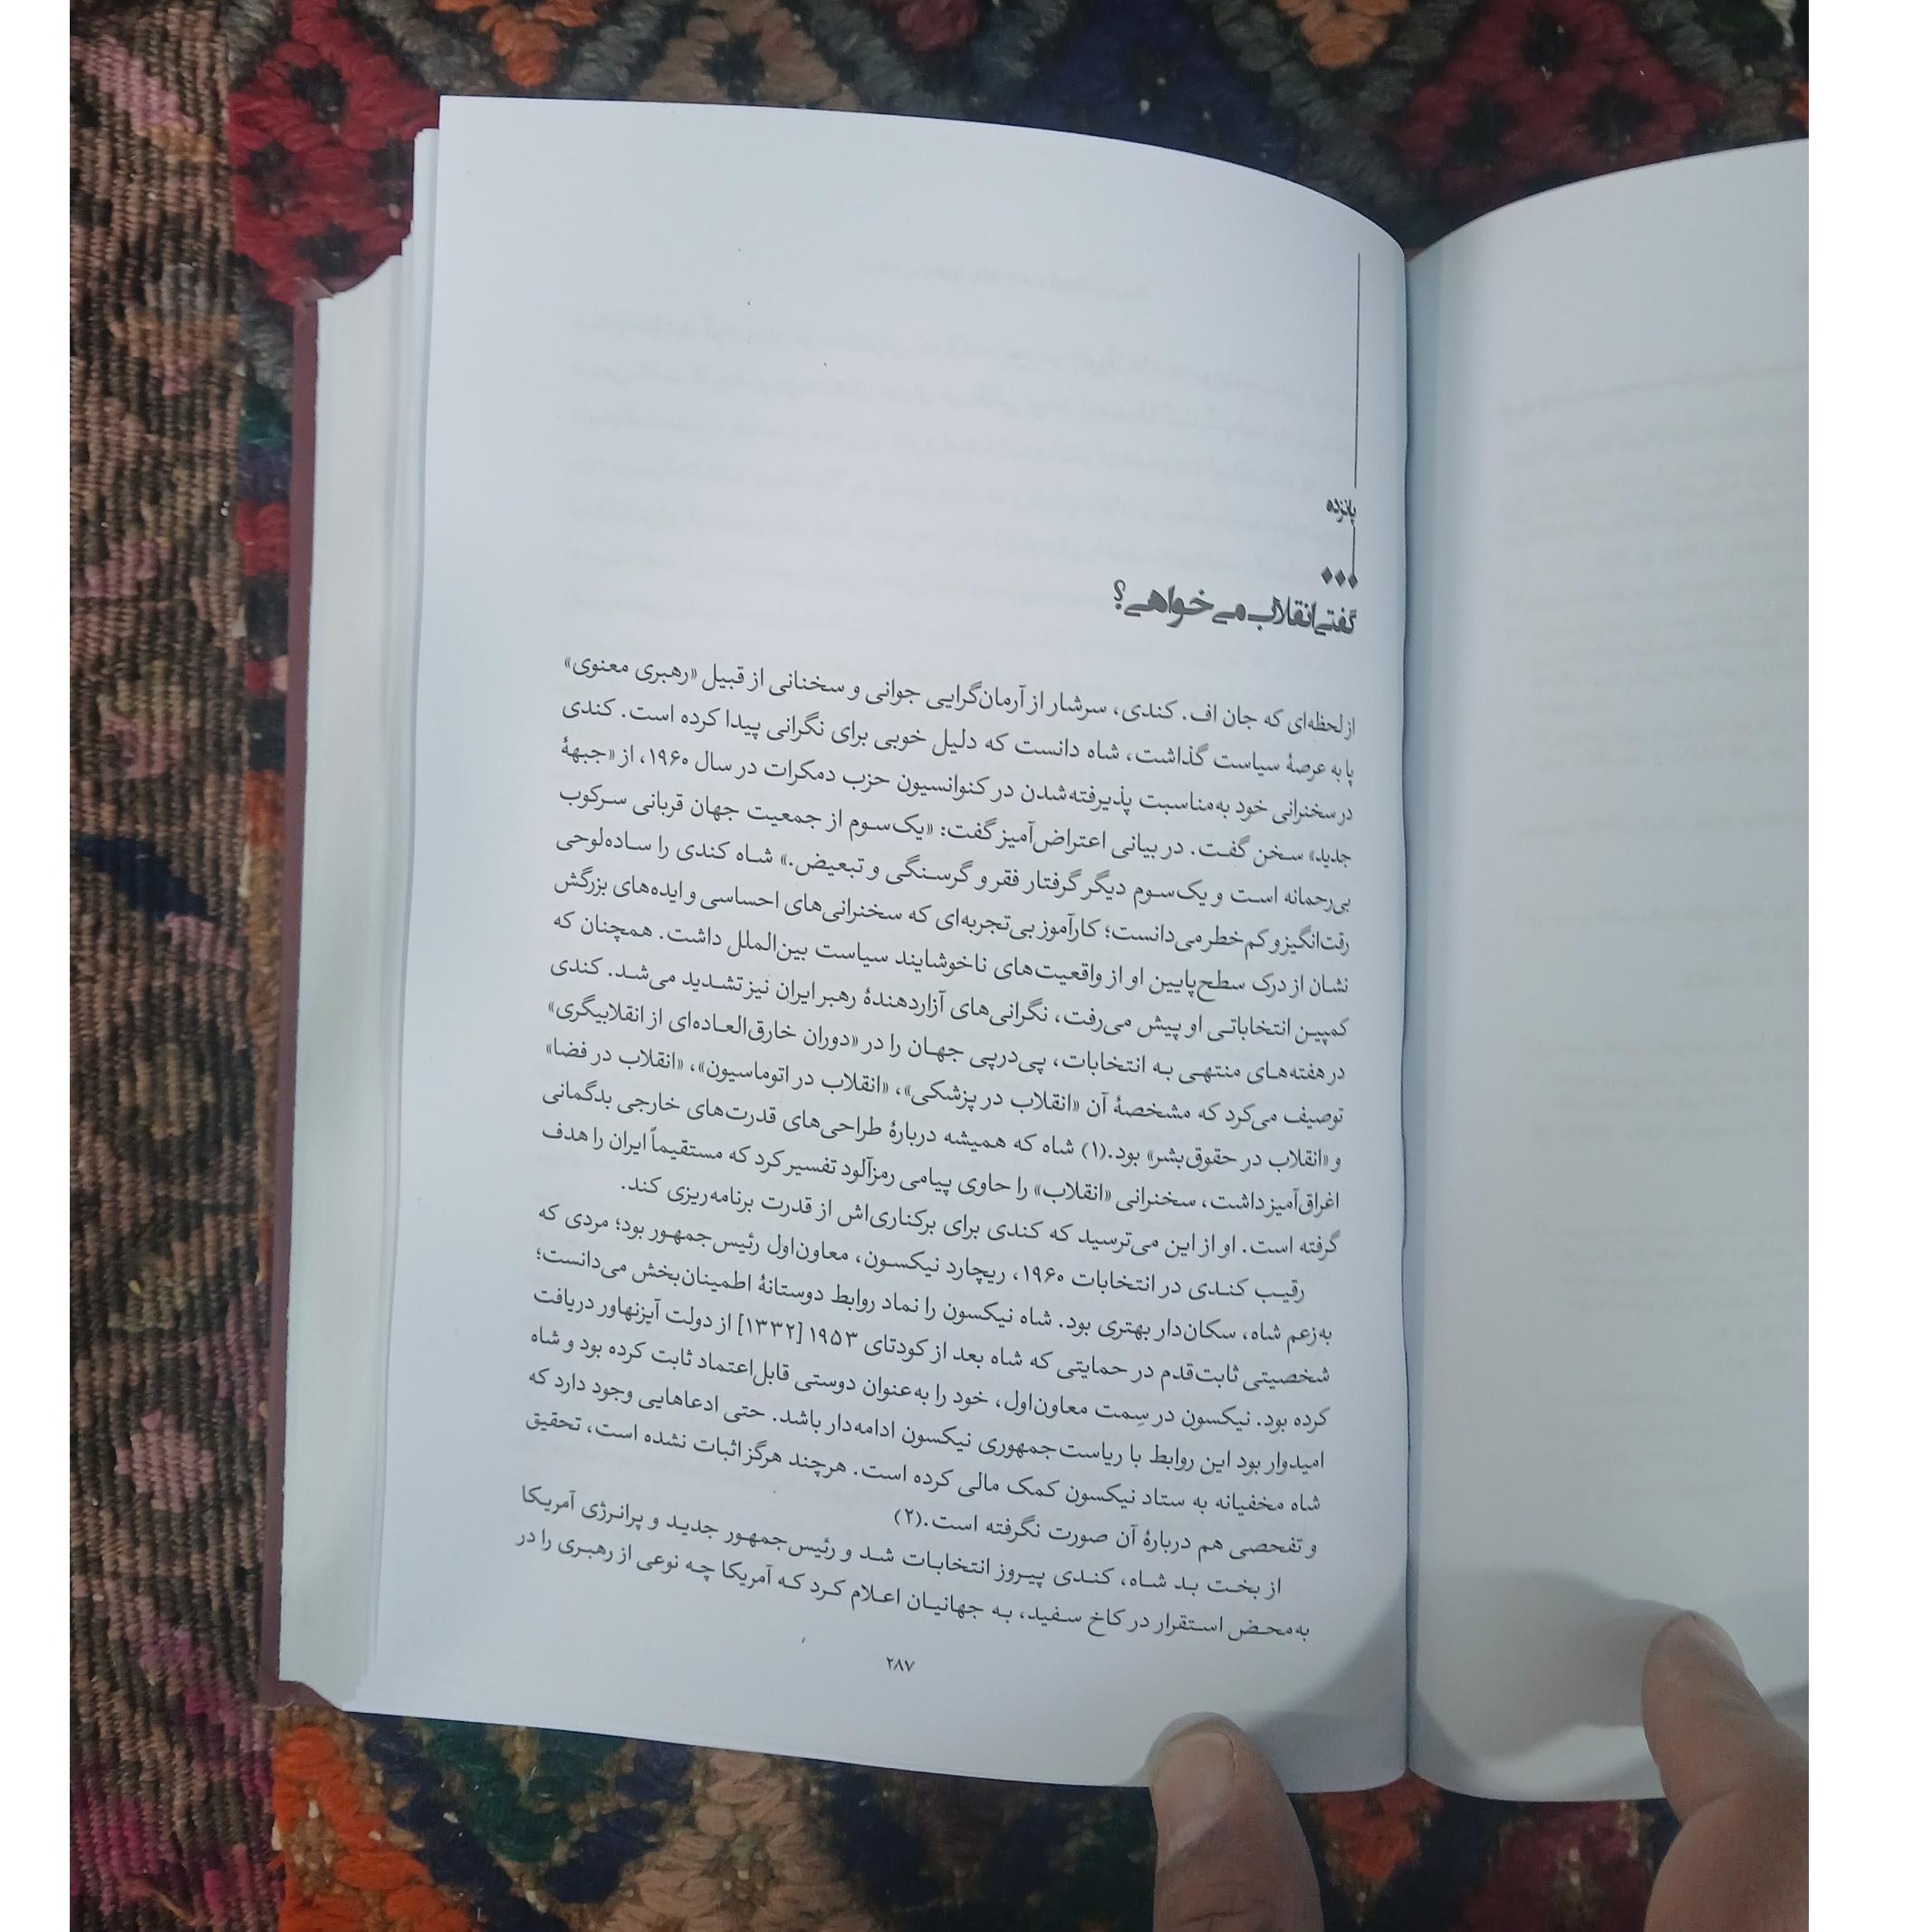 پانزده
گفتی انقلاب می‌خواهی؟
از لحظه‌ای که جان اف. کندی، سرشار از آرمان‌گرایی جوانی و سخنانی از قبیل «رهبری معنوی»
پا به عرصهٔ سیاست گذاشت، شاه دانست که دلیل خوبی برای نگرانی پیدا کرده است. کندی
در سخنرانی خود به‌مناسبت پذیرفته‌شدن در کنوانسیون حزب دمکرات در سال ۱۹۶۰، از «جبههٔ
جدید» سخن گفت. در بیانی اعتراض‌آمیز گفت: «یک‌سوم از جمعیت جهان قربانی سرکوب
بی‌رحمانه است و یک‌سوم دیگر گرفتار فقر و گرسنگی و تبعیض.» شاه کندی را ساده‌لوحی
رقت‌انگیز و کم‌خطر می‌دانست؛ کارآموز بی‌تجربه‌ای که سخنرانی‌های احساسی و ایده‌های بزرگش
نشان از درک سطح‌پایین او از واقعیت‌های ناخوشایند سیاست بین‌الملل داشت. همچنان که
کمپین انتخاباتی او پیش می‌رفت، نگرانی‌های آزاردهندهٔ رهبر ایران نیز تشدید می‌شد. کندی
در هفته‌های منتهی به انتخابات، پی‌درپی جهان را در «دوران خارق‌العاده‌ای از انقلابیگری»
توصیف می‌کرد که مشخصهٔ آن «انقلاب در پزشکی»، «انقلاب در اتوماسیون»، «انقلاب در فضا»
و «انقلاب در حقوق‌بشر» بود.(۱) شاه که همیشه دربارهٔ طراحی‌های قدرت‌های خارجی بدگمانی
اغراق‌آمیز داشت، سخنرانی «انقلاب» را حاوی پیامی رمزآلود تفسیر کرد که مستقیماً ایران را هدف
گرفته است. او از این می‌ترسید که کندی برای برکناری‌اش از قدرت برنامه‌ریزی کند.
رقیب کندی در انتخابات ۱۹۶۰، ریچارد نیکسون، معاون‌اول رئیس‌جمهور بود؛ مردی که
به‌زعم شاه، سکان‌دار بهتری بود. شاه نیکسون را نماد روابط دوستانهٔ اطمینان‌بخش می‌دانست؛
شخصیتی ثابت‌قدم در حمایتی که شاه بعد از کودتای ۱۹۵۳ [۱۳۳۲] از دولت آیزنهاور دریافت
کرده بود. نیکسون در سِمت معاون‌اول، خود را به‌عنوان دوستی قابل‌اعتماد ثابت کرده بود و شاه
امیدوار بود این روابط با ریاست‌جمهوری نیکسون ادامه‌دار باشد. حتی ادعاهایی وجود دارد که
شاه مخفیانه به ستاد نیکسون کمک مالی کرده است. هرچند هرگز اثبات نشده است، تحقیق
و تفحصی هم دربارهٔ آن صورت نگرفته است.(۲)
از بخت بد شاه، کندی پیروز انتخابات شد و رئیس‌جمهور جدید و پرانرژی آمریکا
به‌محض استقرار در کاخ سفید، به جهانیان اعلام کرد که آمریکا چه نوعی از رهبری را در
۲۸۷